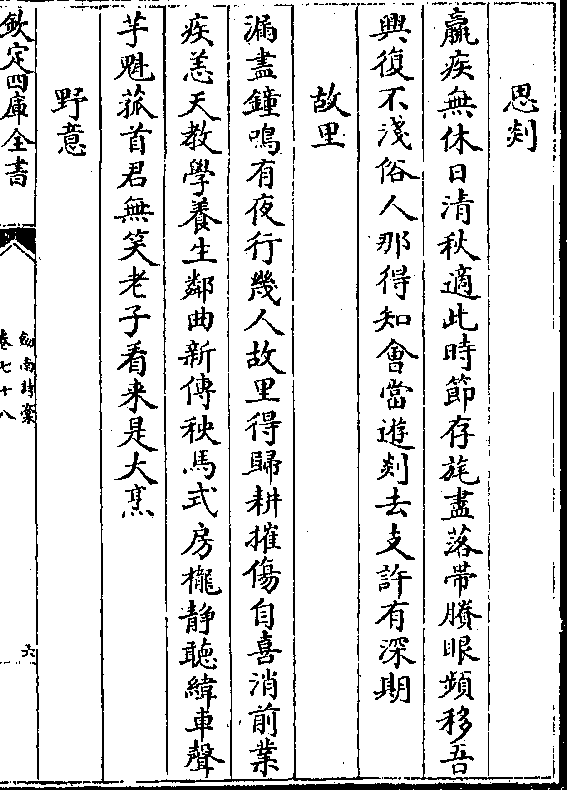 思剡
羸疾無休日清秋適此時節存旄盡落帶賸眼頻移吾
興復不淺俗人那得知會當遊剡去支許有深期
故里
漏盡鐘鳴有夜行幾人故里得歸耕摧傷自喜消前業
疾恙天教學養生鄰曲新傳秧馬式房櫳静聽緯車聲
芋魁菰首君無笑老子看来是大烹
野意
欽定四庫全書
劒南詩稾
卷七十八
六